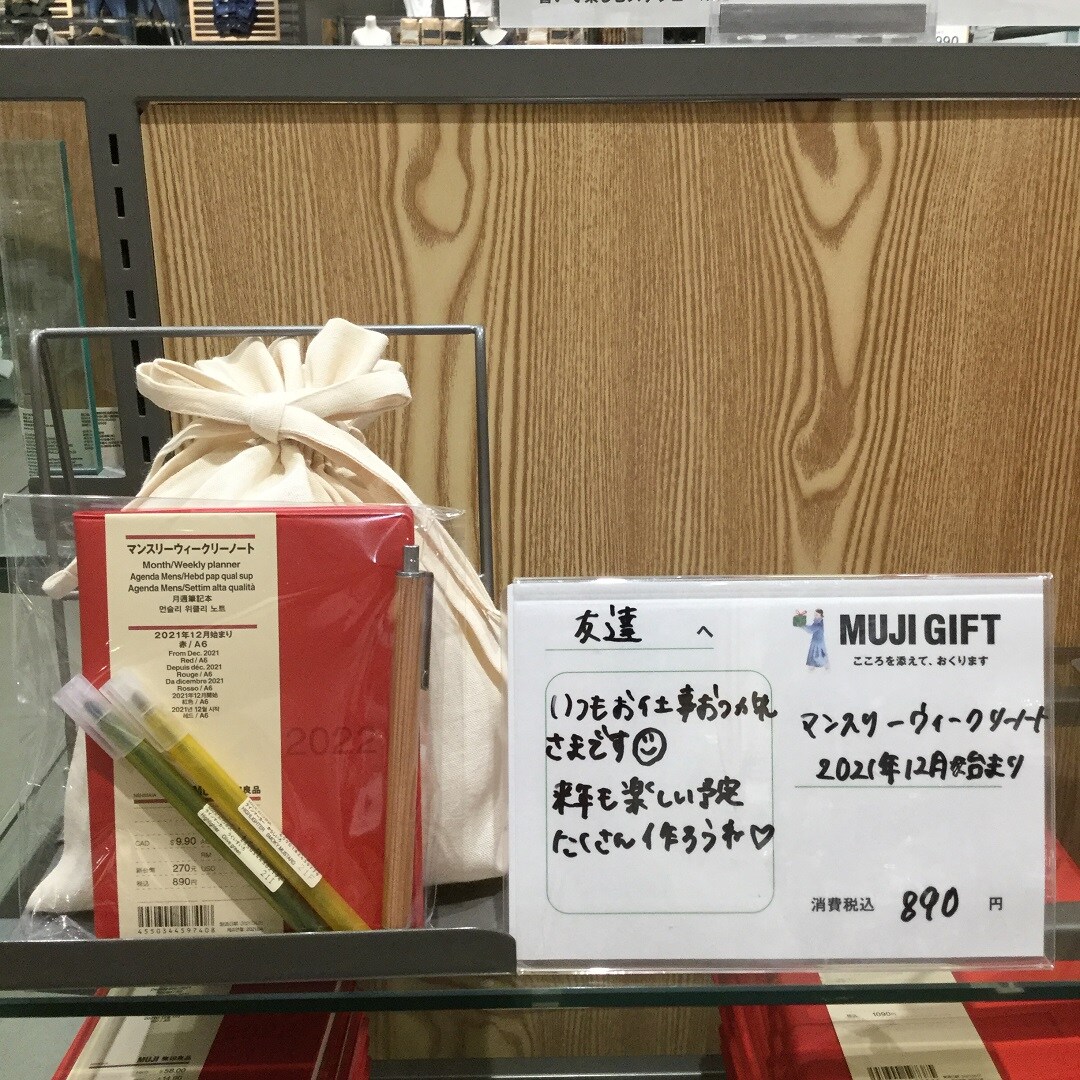 マンスリーウィークリーノート
Month/Weekly planner
Agenda Mens/Hebd pap qual sup
Agenda Mens/Settim alta qualità
月週筆記本
먼슬리 위클리 노트
2021年12月始まり
赤/A6
From Dec. 2021
Red/A6
Depuis déc. 2021
Rouge/A6
Da dicembre 2021
Rosso/A6
2021年12月開始
紅色/A6
2021년 12월 시작
레드/A6
2022
良品
CAD 9.90
RM
270元 USD
税込 890円
4550344597408
友達 へ
いつもお仕事おつかれ
さまです
来年も楽しい予定
たくさん作ろうね♡
MUJI GIFT
こころを添えて、おくります
マンスリーウィークリーノート
2021年12月始まり
消費税込 890 円
MUJI 無印良品
1090円